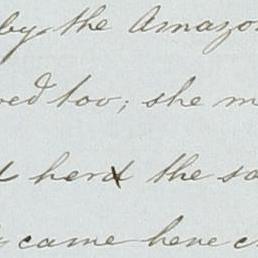 by the Amazon
ved too; she m
herd the so
came here c